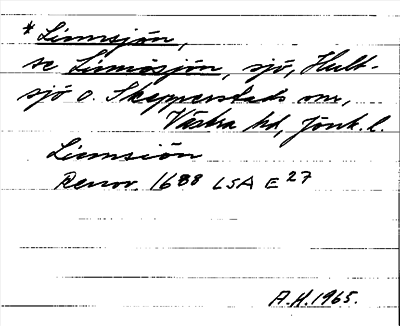 * Limmsjön,
se Limmösjön, sjö, Hult-
sjö o. Skepperstads snr,
Västra hd, Jönk. l.
Limmsiön
Renov. 1688 LSA E 27
A.H. 1965.